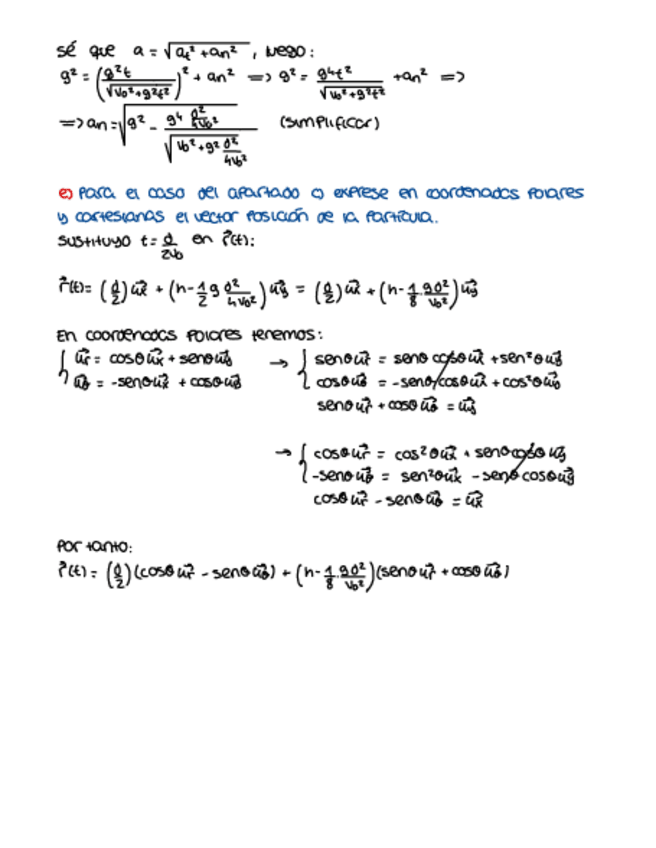 sé que a = √(at² + an²) , luego:
g² = (g²t / √(v₀² + g²t²))² + an² => g² = g⁴t² / √(v₀² + g²t²) + an² =>
=> an = √(g² - g⁴ d²/4v₀² / √(v₀² + g² d²/4v₀²)) (simplificar)
e) Para el caso del apartado c) exprese en coordenadas polares
y cartesianas el vector posición de la partícula.
sustituyo t = d/2v₀ en r⃗(t):
r⃗(t) = (d/2) u⃗x + (h - 1/2 g d²/4v₀²) u⃗y = (d/2) u⃗x + (h - 1/8 gd²/v₀²) u⃗y
En coordenadas polares tenemos:
{ u⃗r = cosθ u⃗x + senθ u⃗y → { senθ u⃗r = senθ cosθ u⃗x + sen²θ u⃗y
u⃗θ = -senθ u⃗x + cosθ u⃗y cosθ u⃗θ = -senθ cosθ u⃗x + cos²θ u⃗y
senθ u⃗r + cosθ u⃗θ = u⃗y
→ { cosθ u⃗r = cos²θ u⃗x + senθ cosθ u⃗y
-senθ u⃗θ = sen²θ u⃗x - senθ cosθ u⃗y
cosθ u⃗r - senθ u⃗θ = u⃗x
Por tanto:
r⃗(t) = (d/2)(cosθ u⃗r - senθ u⃗θ) + (h - 1/8 gd²/v₀²)(senθ u⃗r + cosθ u⃗θ)